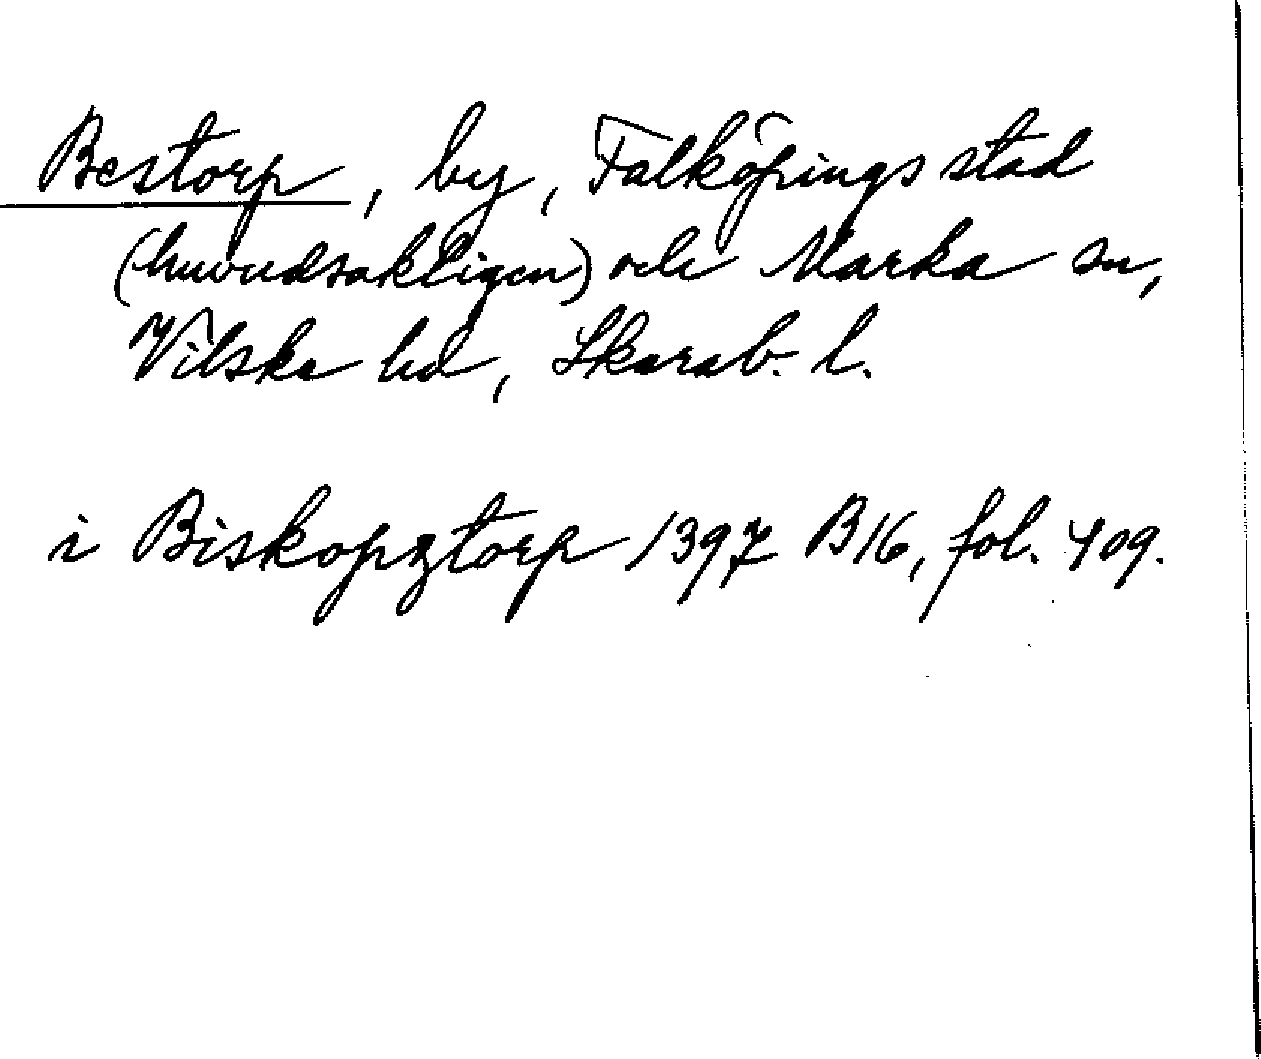 Bestorp, by, Falköpings stad
(huvudsakligen) och Marka sn,
Vilske hd, Skarab. l.
i Biskopztorp 1397 B16, fol. 409.